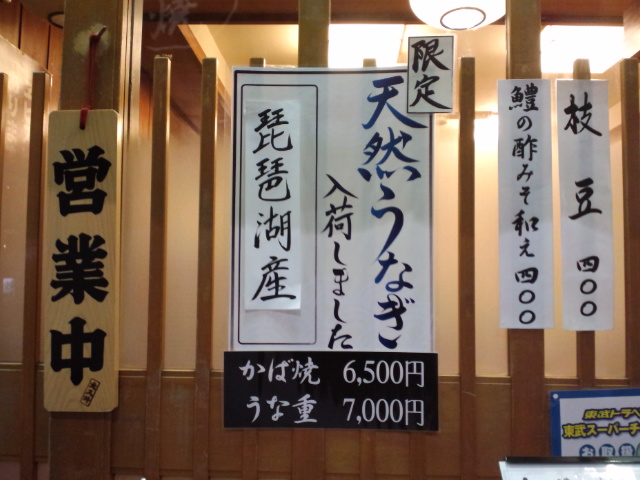 営業中
限定
天然うなぎ
入荷しました
琵琶湖産
かば焼 6,500円
うな重 7,000円
鱧の酢みそ和え 四〇〇
枝豆 四〇〇
東武トラベ
東武スーパーチ
お取扱